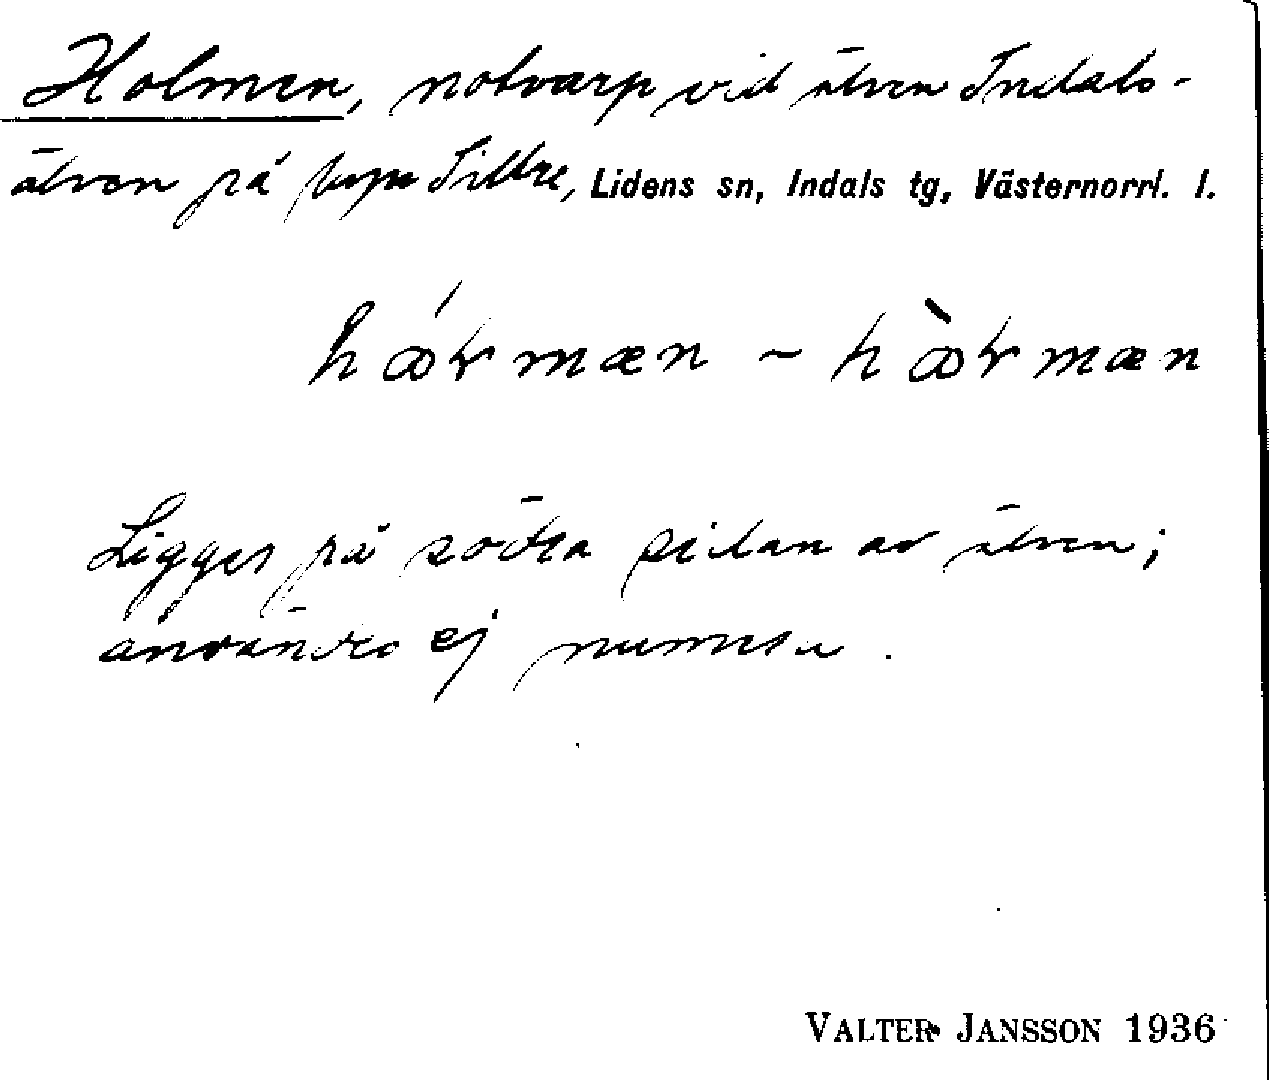 Holmen, notvarp vid älven Indals-
älven på byn Sillre, Lidens sn, Indals tg, Västernorrl. l.
Ligger på södra sidan av älven;
användes ej numera.
VALTER JANSSON 1936